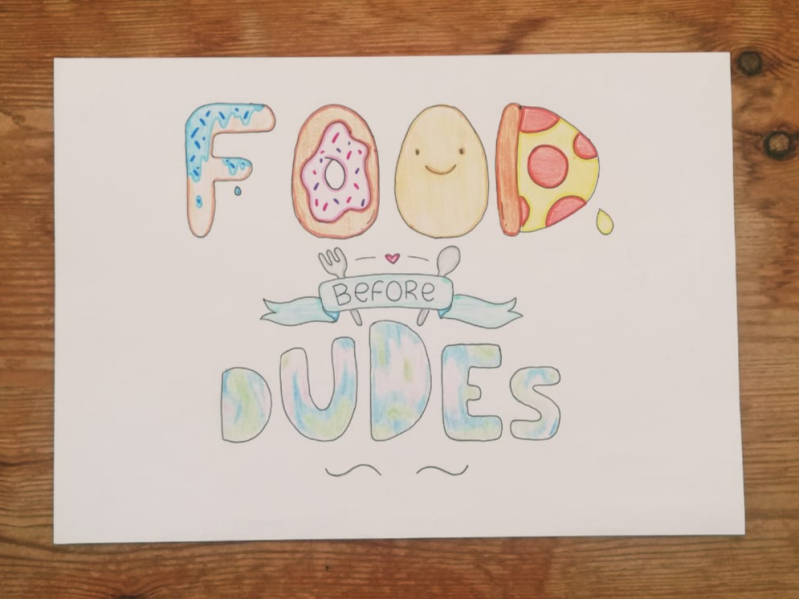 FOOD
BEFORE
DUDES